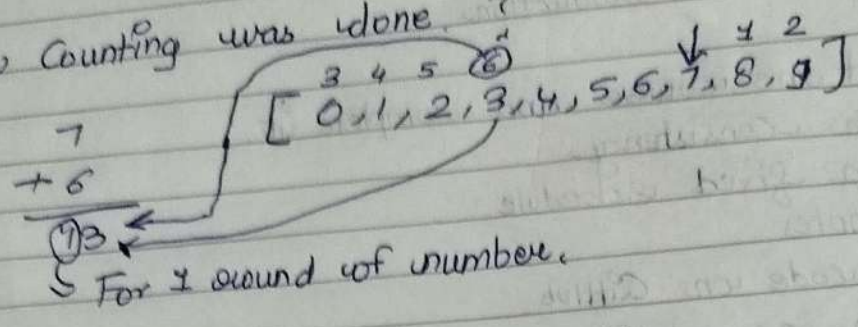 Counting was done.
3 4 5 6 1 2
[ 0, 1, 2, 3, 4, 5, 6, 7, 8, 9 ]
7
+ 6
13
For 1 round of number.